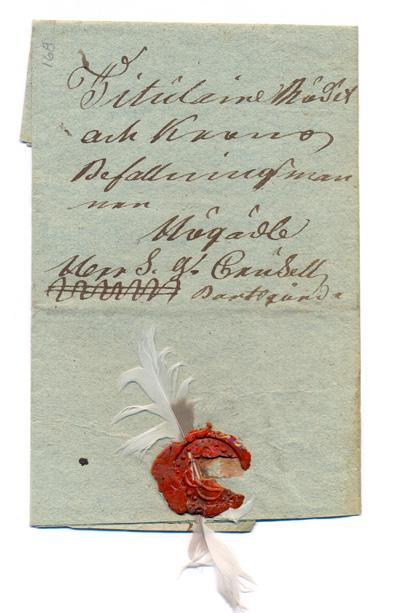 168
Titulaire Rådet
och Krono
Befallningsman
nen
Högädle
Herr S. G. Crusell